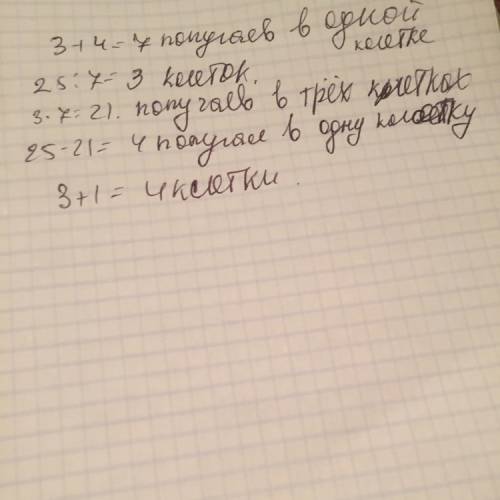 3+4=7 попугаев в одной
клетке
25:7=3 клеток.
3·7=21. попугаев в трёх клетках
25-21= 4 попугая в одну клетку
3+1= 4 клетки.